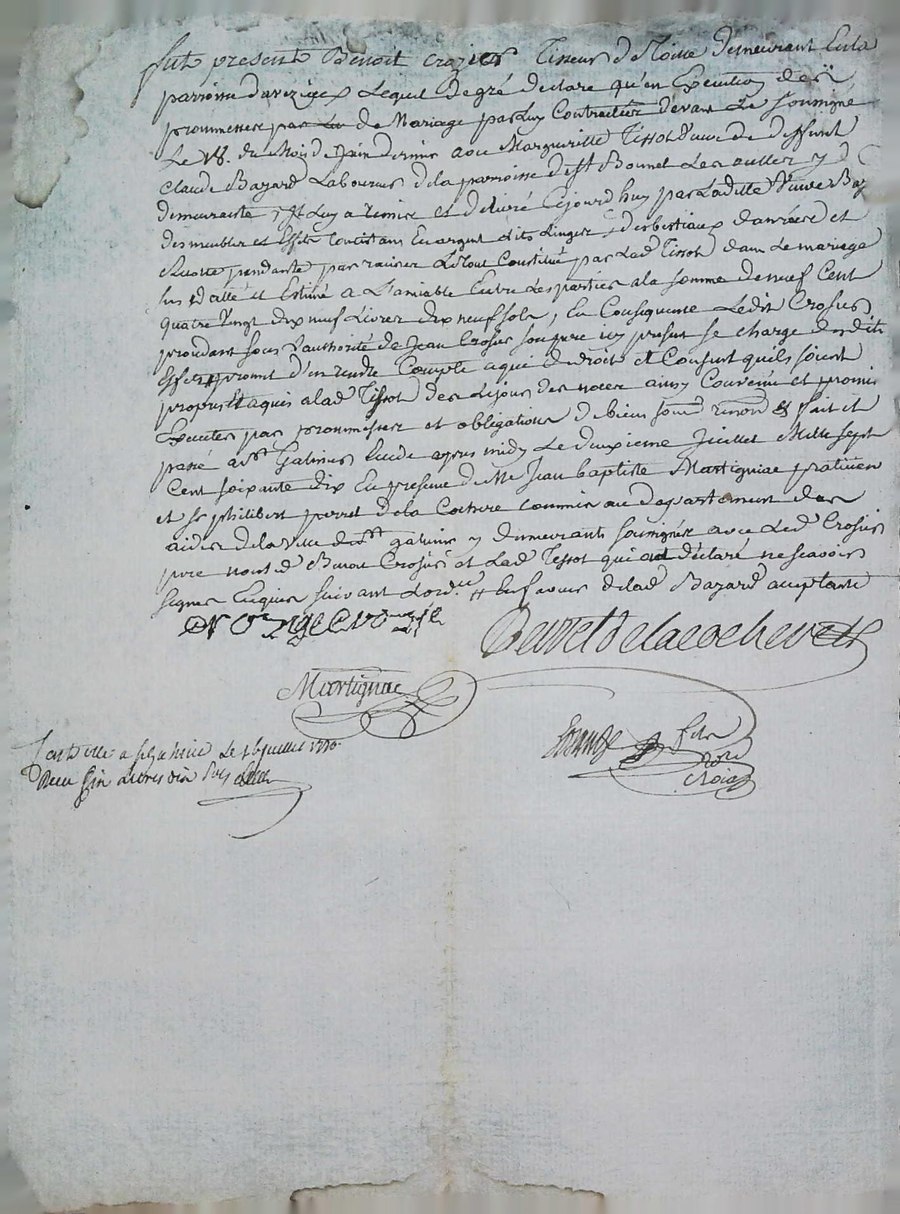 fut present Benoit Crozier Tisseur de Toile demeurant en la
parroisse daveizieux Lequel de gré declare qu'en Execution des
promesses de Mariage par luy Contractées devant Le soussigné
Le 18. du Mois de Juin dernier avec Margueritte Tissot veuve de deffunt
Claude Bazard Laboureur de la parroisse de St Bonnet Les oulles y
demeurante, Il luy a remis et delivré cejourd'huy par Laditte veuve Baz
des meubles et Effets Consistans En argent lits Linges, des bestiaux danrées et
Recolte pendante par racines Le Tout Constitué par Lad Tissot dans Le mariage
sus datté et Estimé a L'amiable Entre Les parties a la somme de neuf Cent
quatre vingt dix neuf Livres dix neuf sols, En Consequence Ledit Crosier
procedant sous L'authorité de Jean Crosier son pere icy present se charge desdits
Effets promet d'en rendre Compte a qui de droit et Consent quils soient
propres et aquis a lad Tissot des Le jour des noces ainsy Convenu et promis
Executer par promesses et obligations de biens soumd renond & fait et
passé a St Galmier Etude apres midy Le deuxieme Juillet Mille sept
Cent soixante dix En presence de Me Jean baptiste Martigniac praticien
et sr philibert perret de la Cochere commis au departement des
aides de la ville de St galmier y demeurants soussignés avec Led Crosier
pere non led Benoit Crosier et Lad Tissot qui ont déclaré ne scavoir
signer Enquis suivant Lordce # En faveur de lad Bazard acceptante
Perret de la cochere
Martignac
fils
nore
roial
a st galmier Le 16 juillet 1770